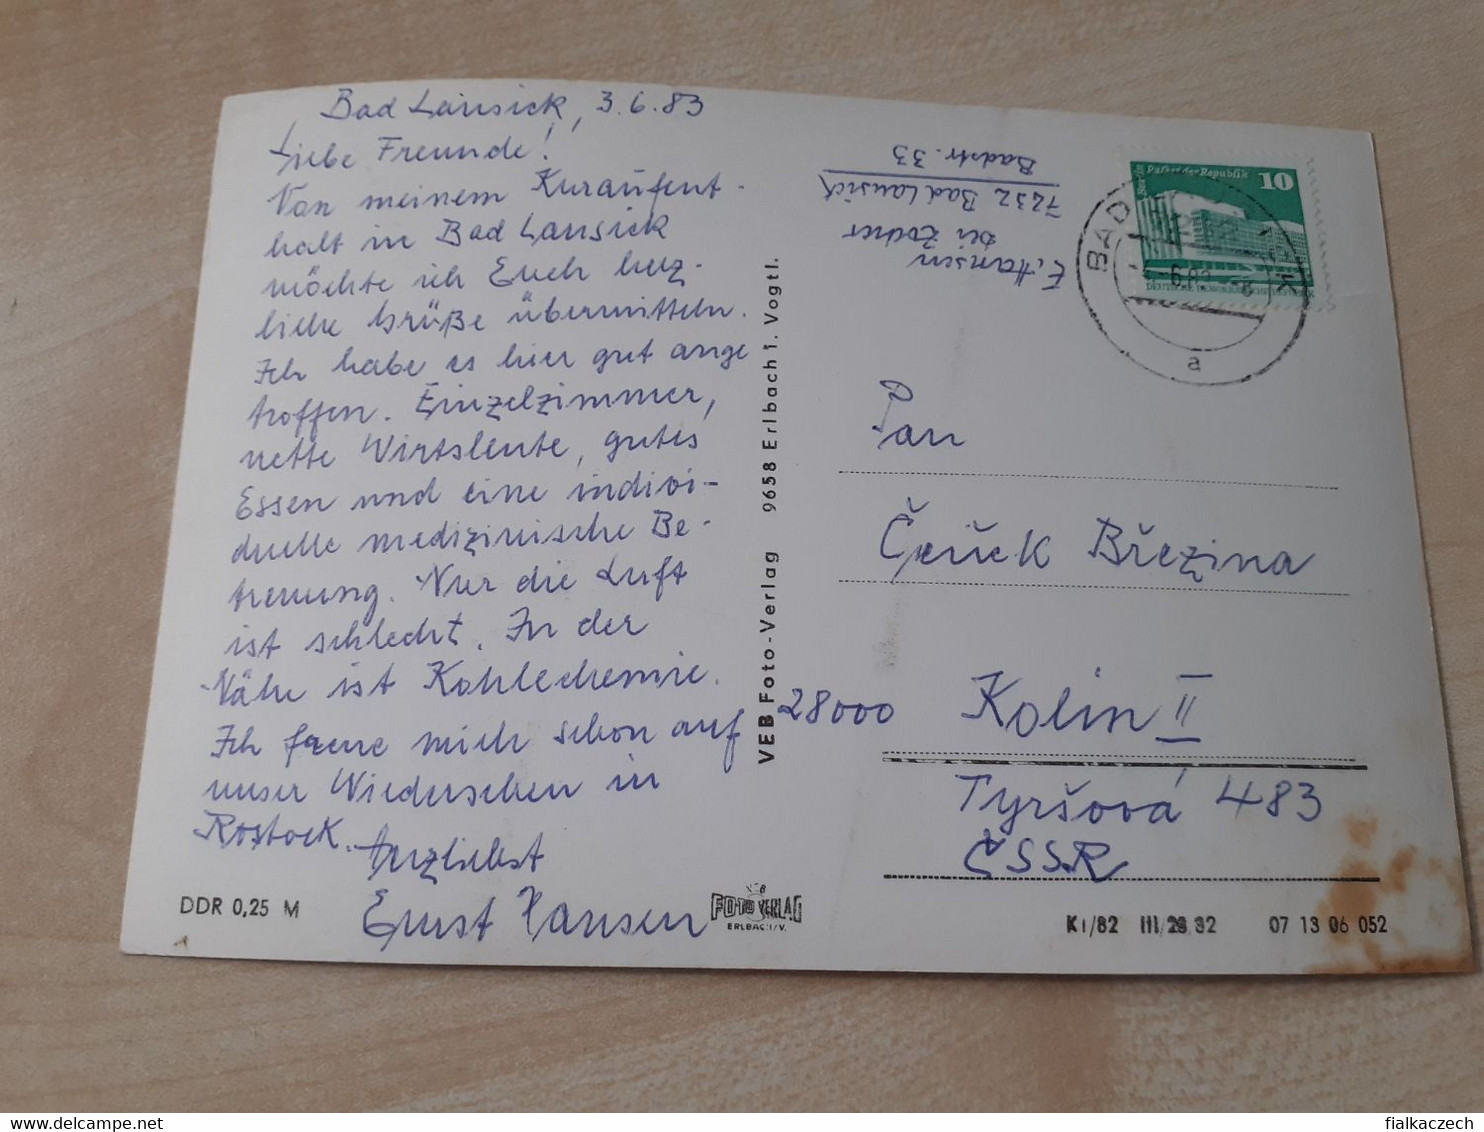 Bad Lausick, 3.6.83
Liebe Freunde!
Von meinem Kuraufent-
halt in Bad Lausick
möchte ich Euch herz-
liche Grüße übermitteln.
Ich habe es hier gut ange
troffen. Einzelzimmer,
nette Wirtsleute, gutes
Essen und eine indivi-
duelle medizinische Be-
treuung. Nur die Luft
ist schlecht. In der
Nähe ist Kohlechemie.
Ich freue mich schon auf
unser Wiedersehen in
Rostock.
Herzlichst
Ernst Hansen
DDR 0,25 M
FOTO VERLAG
ERLBACH/V.
VEB Foto-Verlag 9658 Erlbach i. Vogtl.
E. Hansen
bei Zocher
7232 Bad Lausick
Badstr. 33
Berlin Palast der Republik 10
BAD
a
Pan
Březina
28000 Kolin II
Tyršová 483
ČSSR
K1/82 III/28/82 07 13 06 052
fialkaczech
delcampe.net